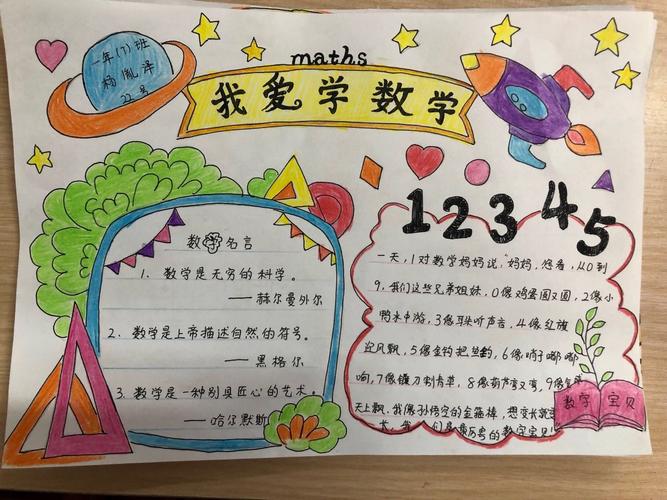 一年(7)班
杨胤泽
22号
maths
我爱学数学
数学名言
1、数学是无穷的科学。
——赫尔曼外尔
2、数学是上帝描述自然的符号。
——黑格尔
3、数学是一种别具匠心的艺术。
——哈尔默斯
1 2 3 4 5
一天,1对数学妈妈说:"妈妈,您看,从0到
9,我们这些兄弟姐妹,0像鸡蛋圆又圆,2像小
鸭水中游,3像耳朵听声音,4像红旗
迎风飘,5像金钩把,6像哨子嘟嘟
响,7像镰刀割青草,8像葫芦弯又弯,9像
天上飘,我像孙悟空的金箍棒,想变长就变
长,我们是的数字宝贝!
数学 宝贝